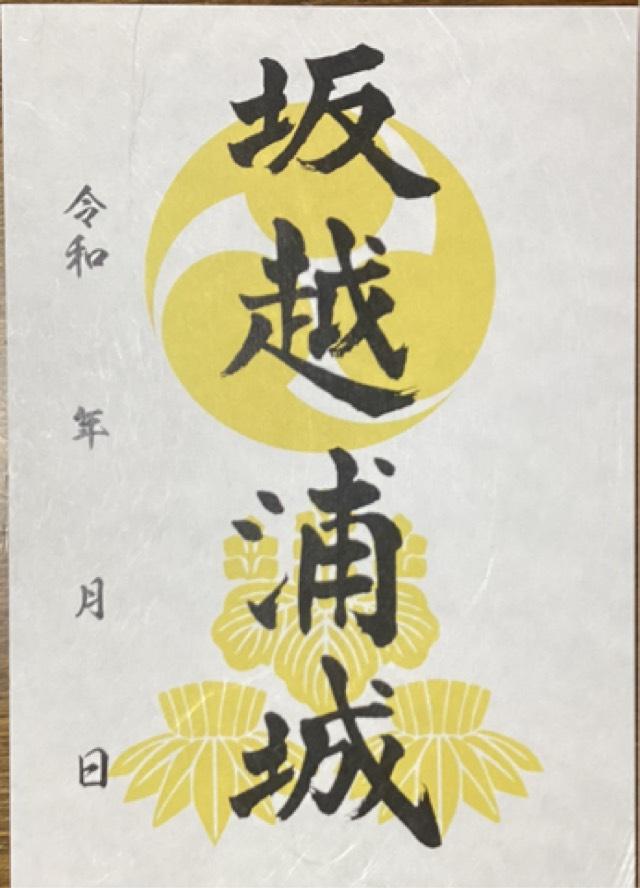 坂越浦城
令和 年 月 日